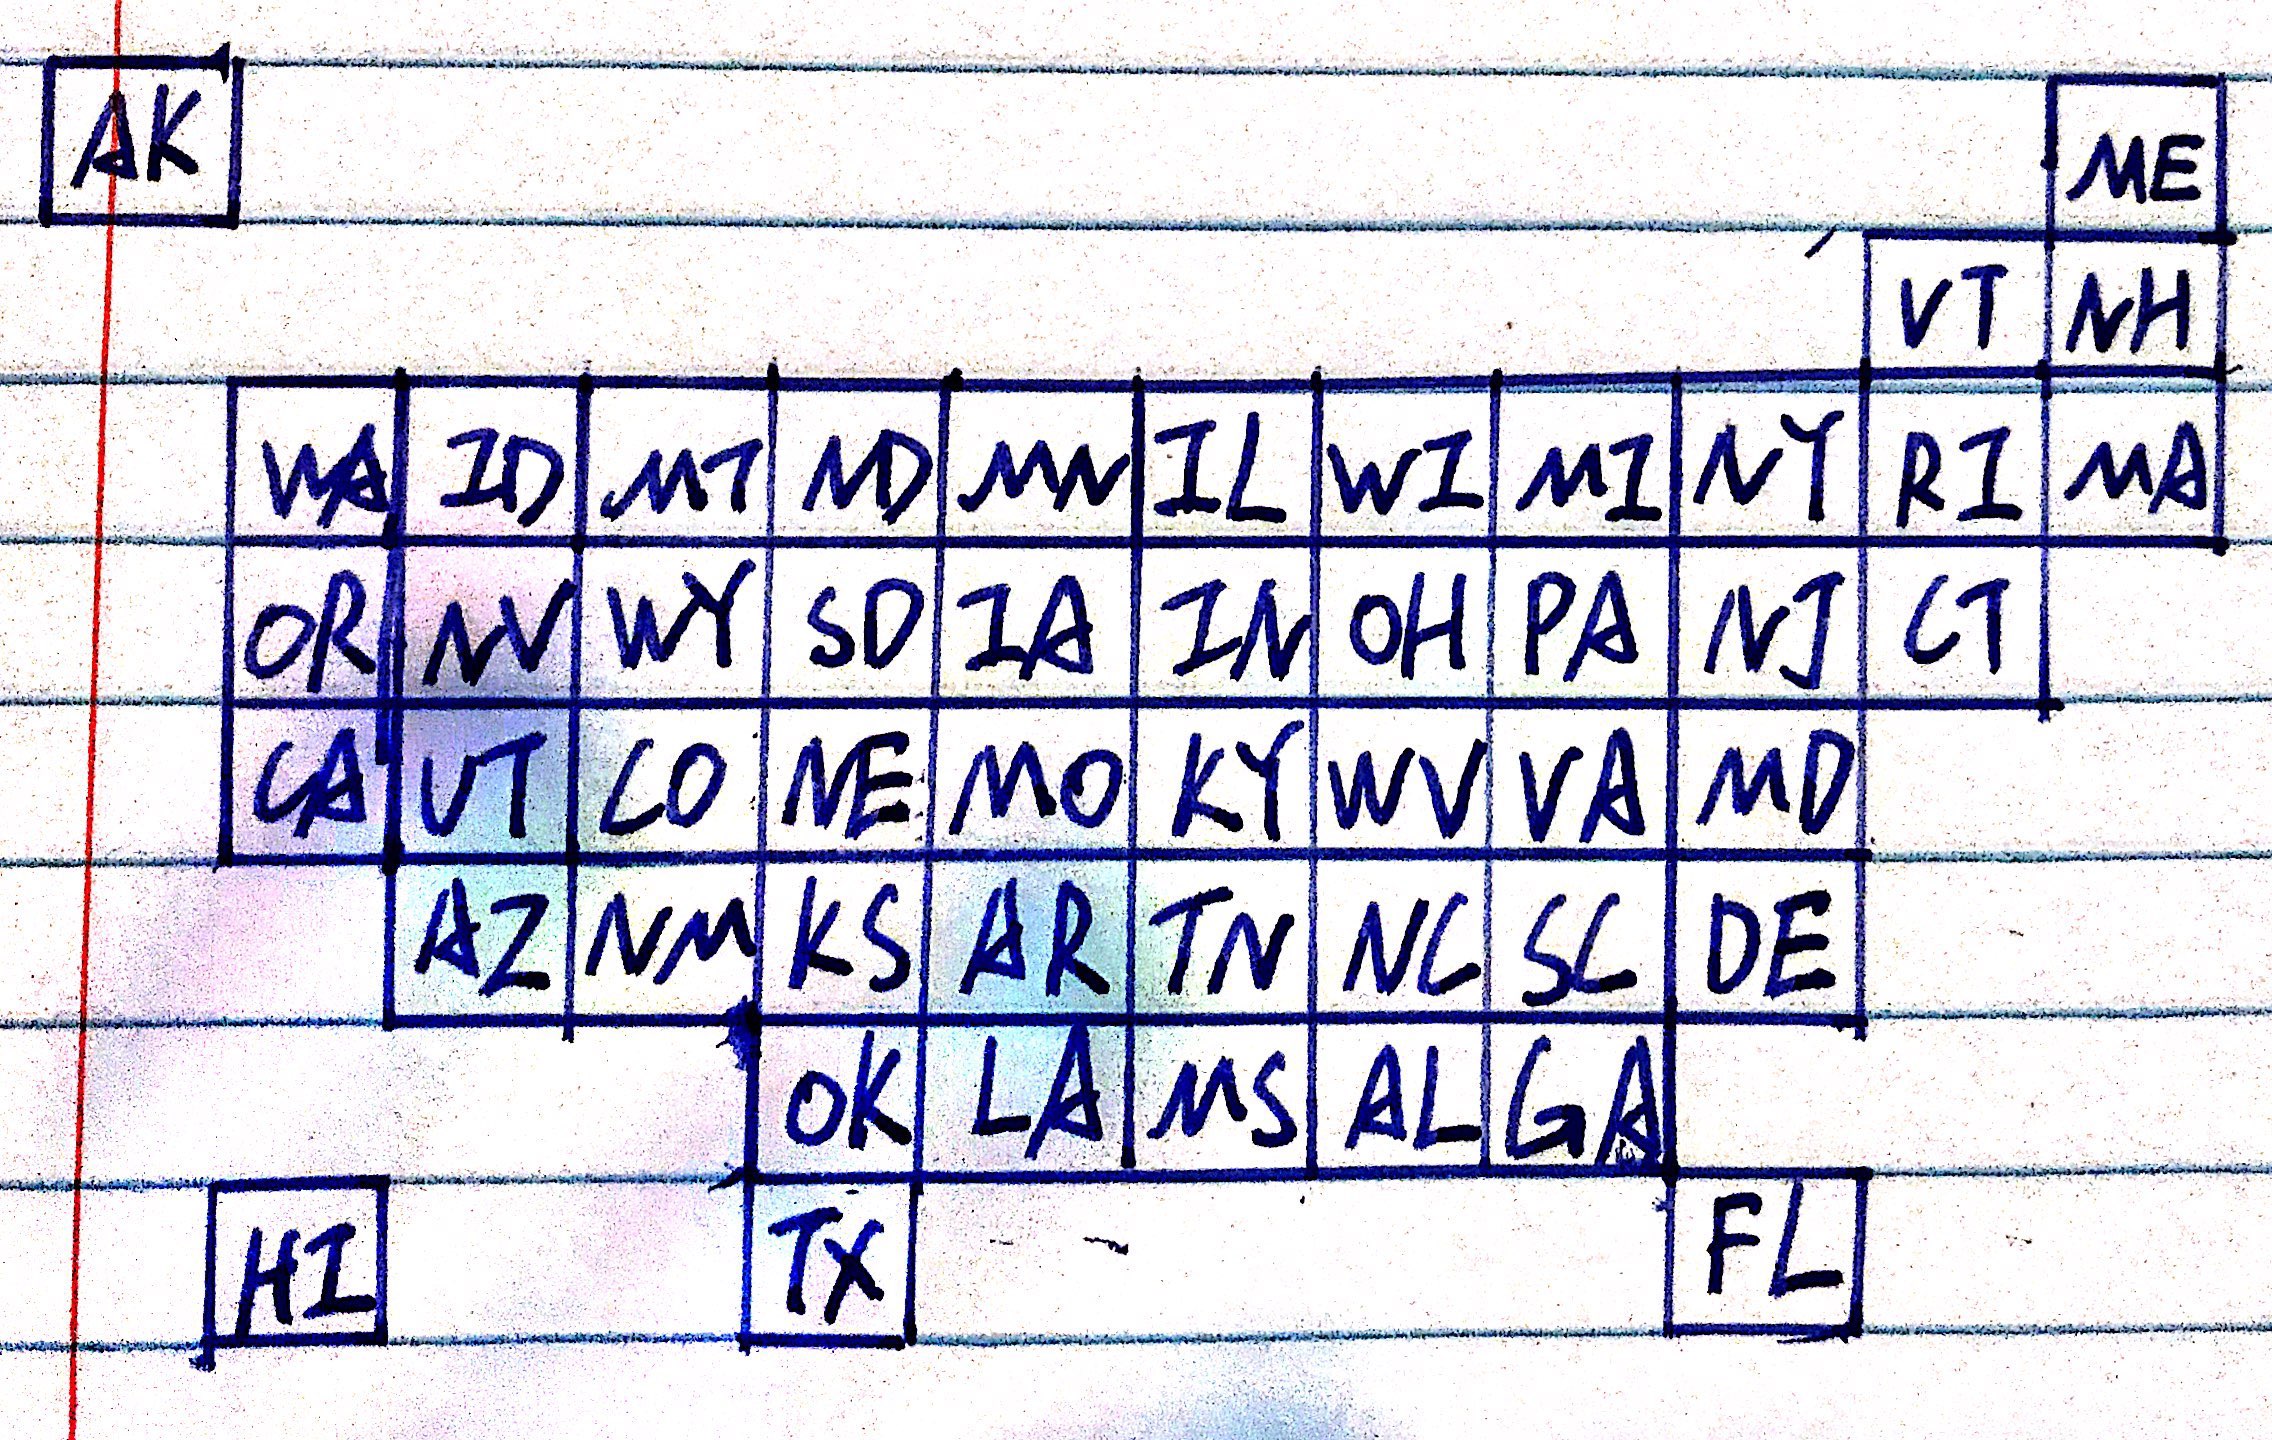 AK ME
VT NH
WA ID MT ND MN IL WI MI NY RI MA
OR NV WY SD IA IN OH PA NJ CT
CA UT CO NE MO KY WV VA MD
AZ NM KS AR TN NC SC DE
OK LA MS AL GA
HI TX FL